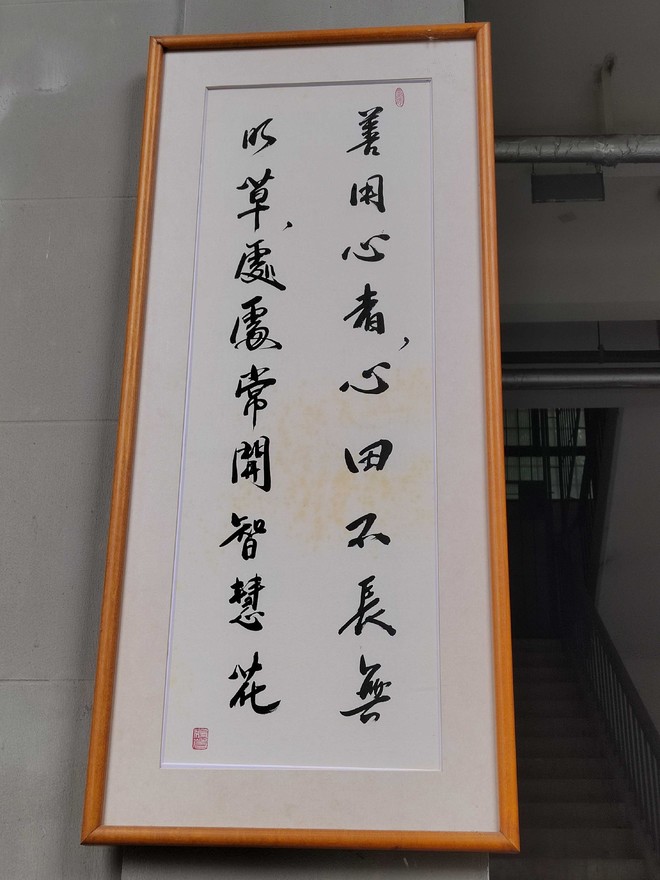 善用心者,心田不長無
明草,處處常開智慧花